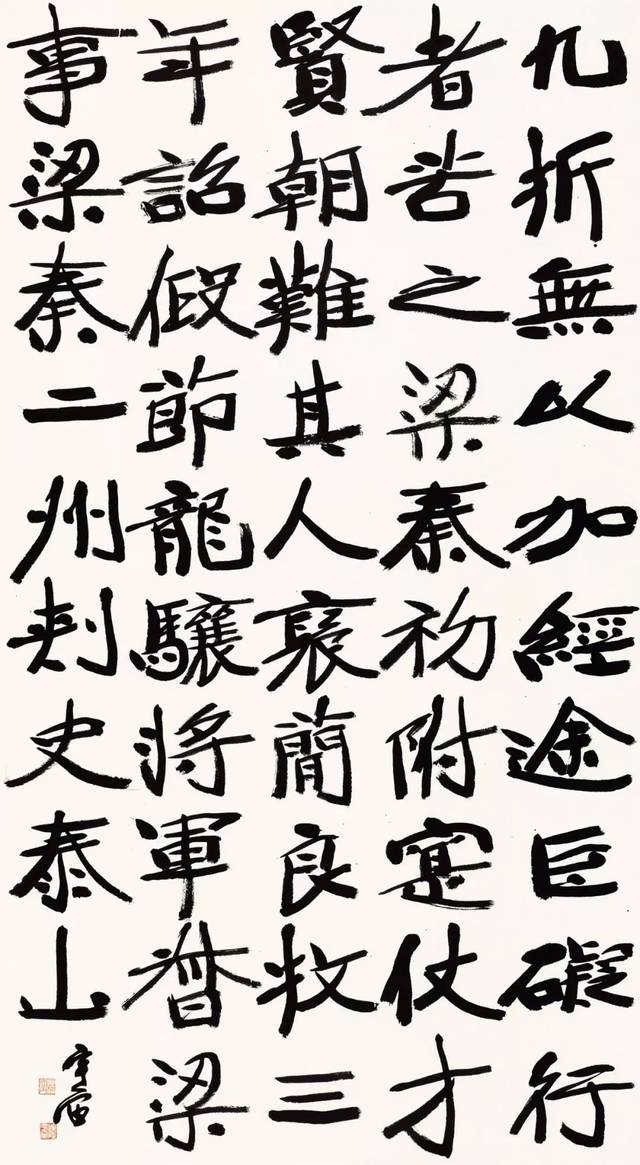 九折無以加經途巨礙行
者苦之梁秦初附寔仗才
賢朝難其人褒簡良牧三
年詔假節龍驤將軍督梁
事梁秦二州刾史泰山